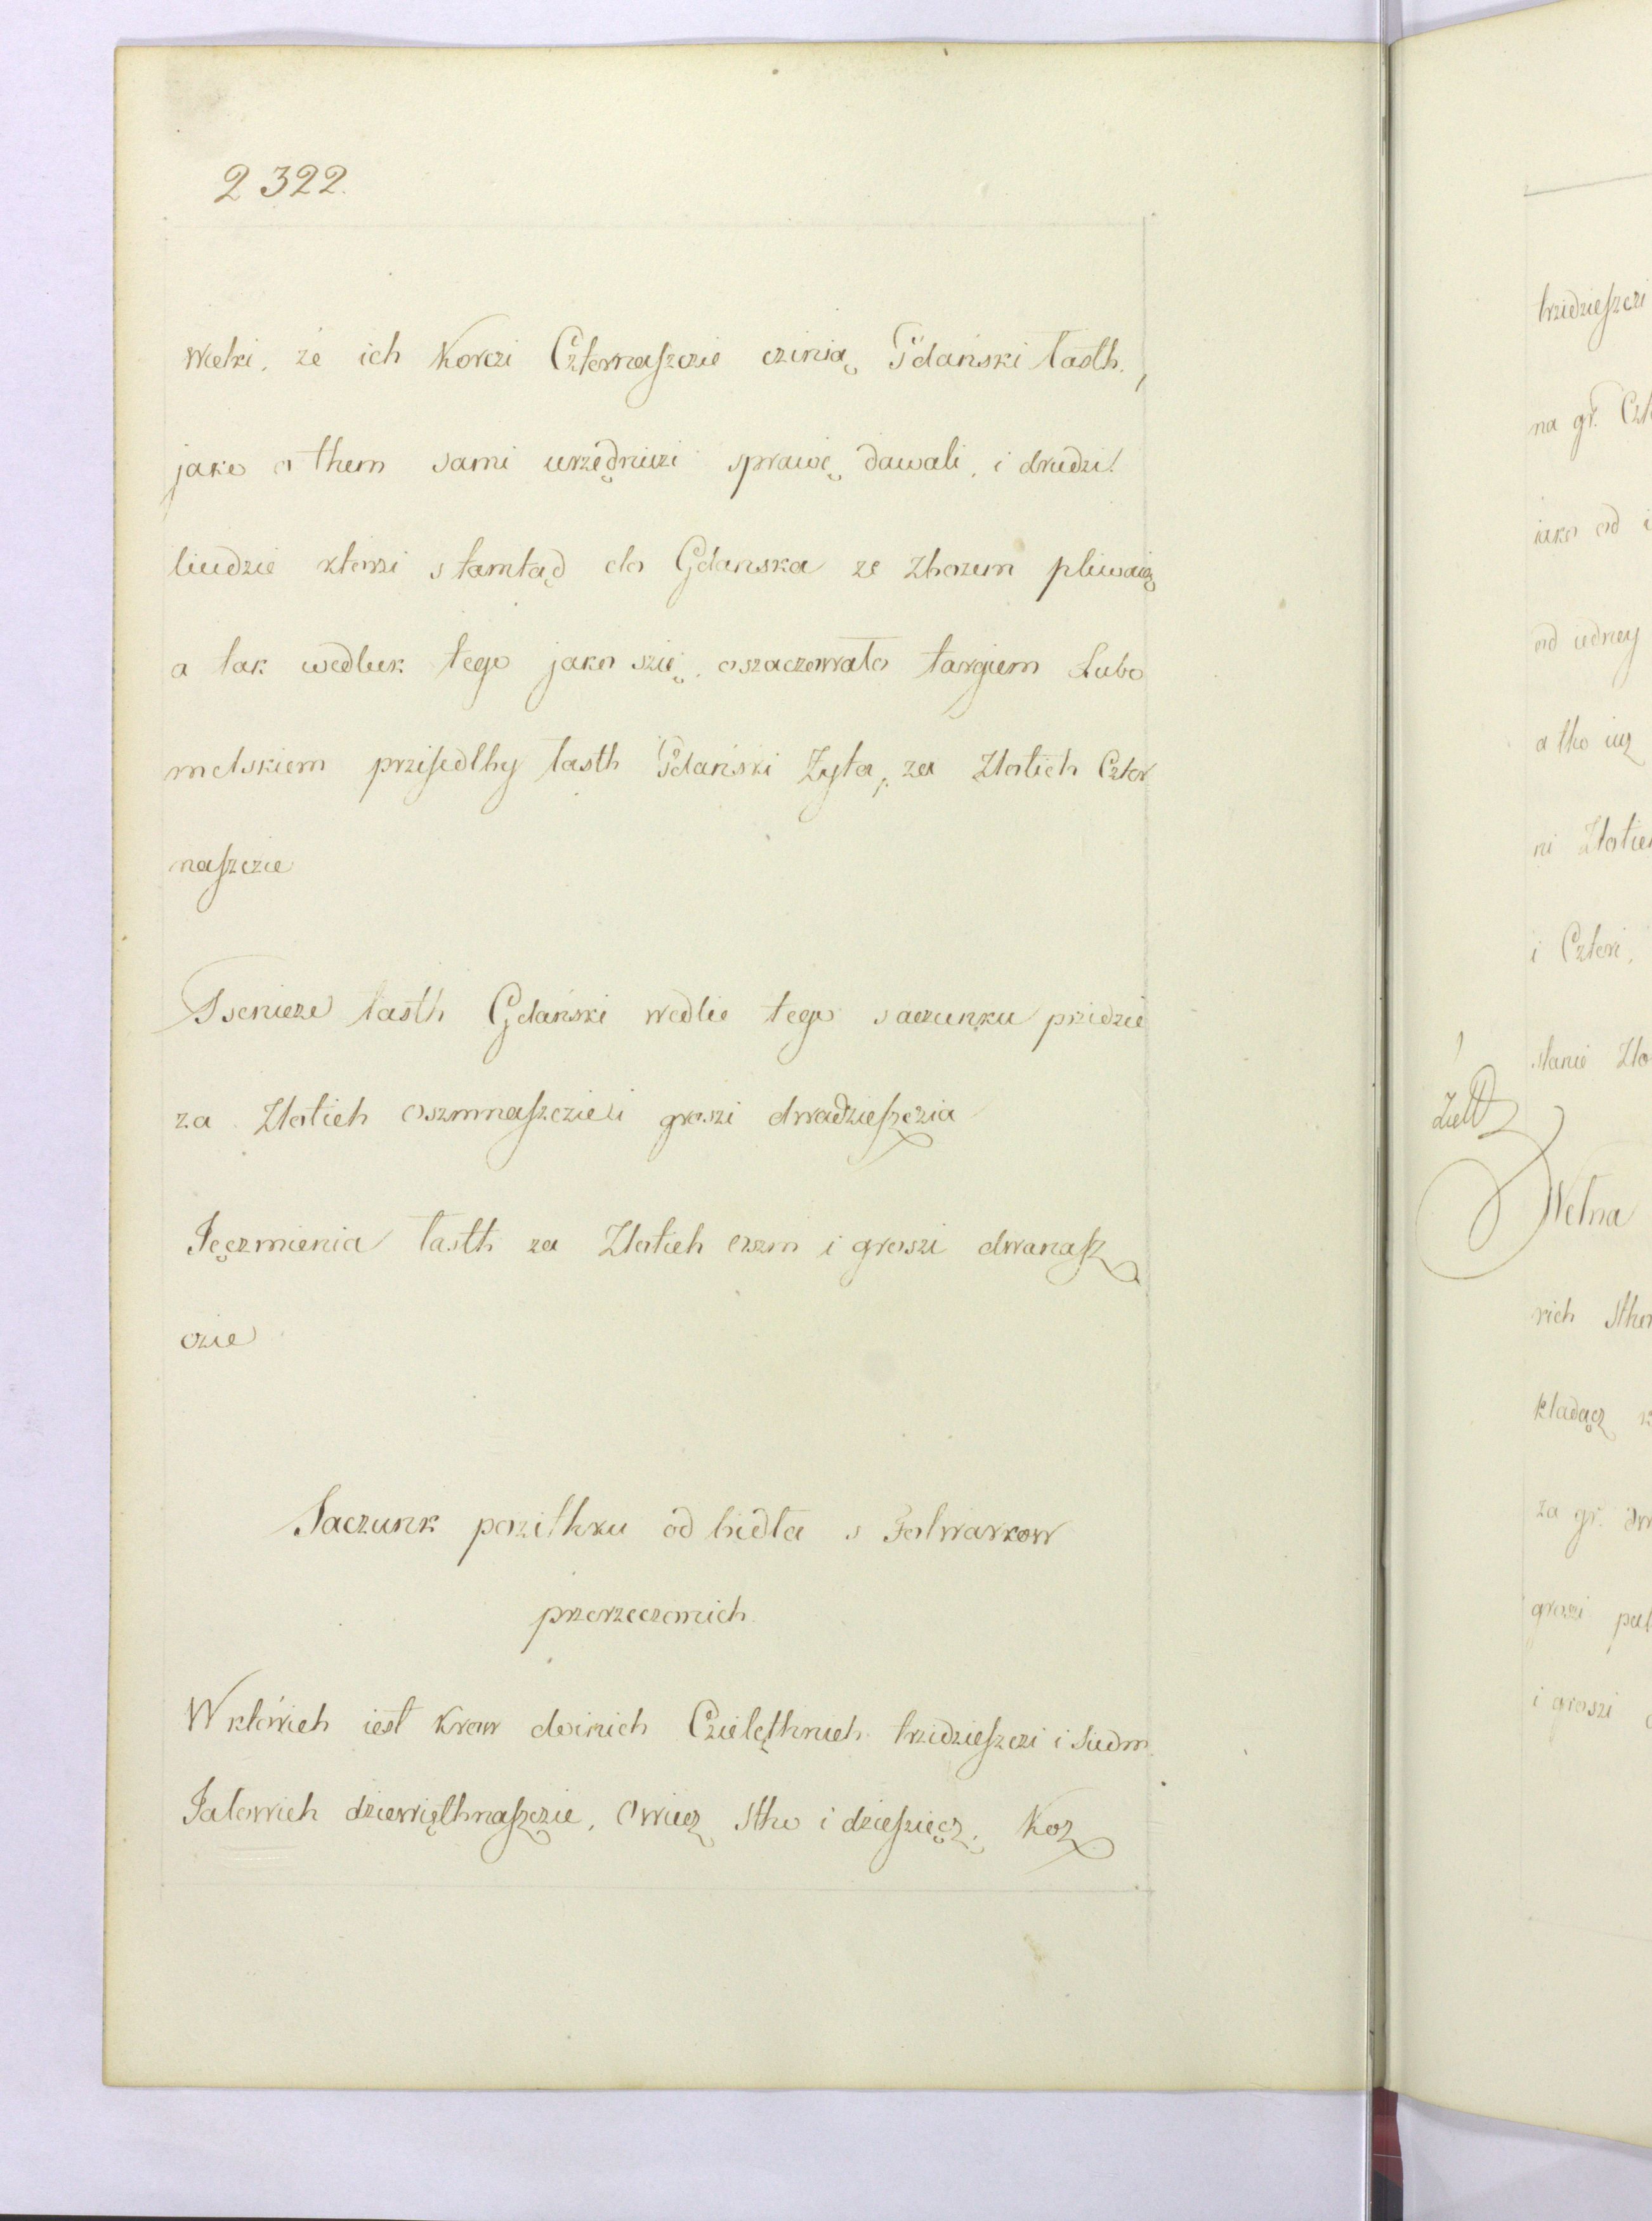 2322.
wielki, że ich Korczi Czternaszczie czinią Gdański łasth,
jako o them sami urzędniczi sprawę dawali, i drudzi
liudzie ktorzi stamtąd do Gdanska ze zbozem pliwaią
a tak wedluk tego jako szię oszaczowało targiem Lubo
melskiem przisedlby łasth Gdański Żyta, za Złotich Czter
naszczie
Psenicze łasth Gdański wedlie tego saczunku przidzie
za Złotich oszmnaszczie i groszi dwadzieszczia
Jęczmienia łasth za Złotich oszm i groszi dwanasz
czie
Saczunk pozithku od bidła s Folwarkow
przerzeczonich
W ktorich iest Krow doinich Czielęthnich trzidzieszczi i siedm
Jałowich dziewięthnaszczie, Owiecz stho i dzieszięcz, Koz
trzidzieszczi
na gr.
iako od
od iedney
a tho iuz
i Czteri,
Wełna
rich
kładącz
za gr.
groszi
i groszi